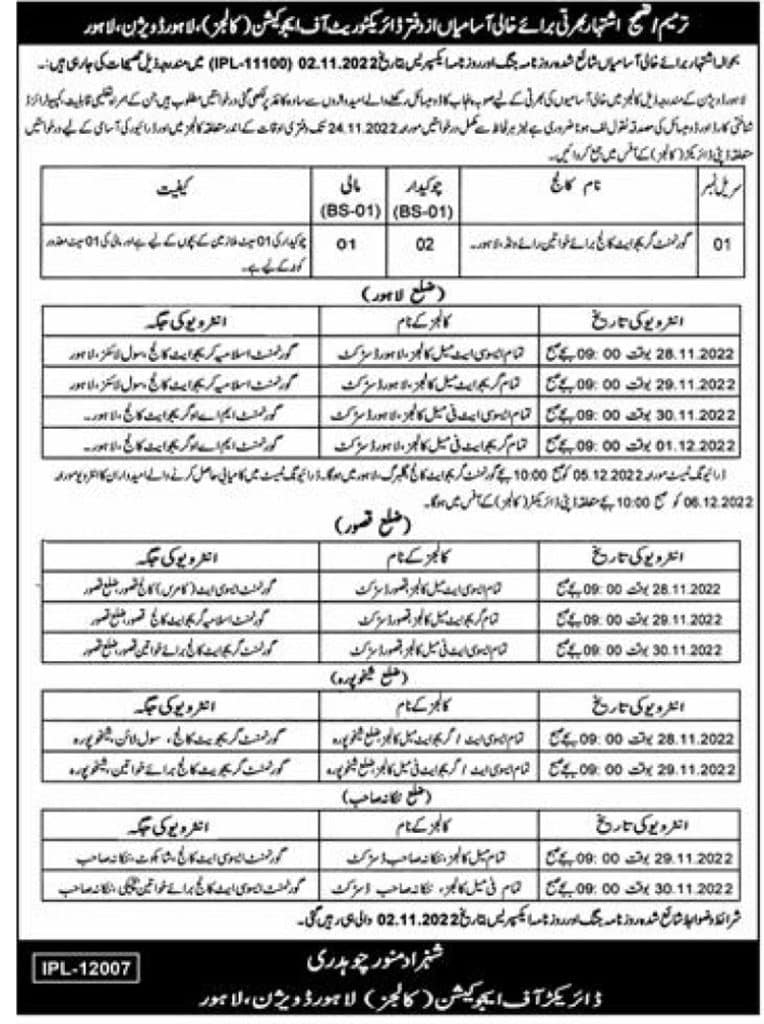 ترمیم / تصحیح اشتہار بھرتی برائے خالی آسامیاں از دفتر ڈائریکٹوریٹ آف ایجوکیشن (کالجز)، لاہور ڈویژن، لاہور
بحوالہ اشتہار برائے خالی آسامیاں شائع شدہ روزنامہ جنگ اور روزنامہ ایکسپریس بتاریخ 02.11.2022 (IPL-11100) میں مندرجہ ذیل تصحیحات کی جا رہی ہیں:۔
لاہور ڈویژن کے مندرجہ ذیل کالجز میں خالی آسامیوں کی بھرتی کے لیے صوبہ پنجاب کا ڈومیسائل رکھنے والے امیدواروں سے سادہ کاغذ پر لکھی گئی درخواستیں مطلوب ہیں جن کے ہمراہ تعلیمی قابلیت، کمپیوٹرائزڈ
شناختی کارڈ اور ڈومیسائل کی مصدقہ نقول لف ہونا ضروری ہے نیز ہر لحاظ سے مکمل درخواستیں مورخہ 24.11.2022 تک دفتری اوقات کے اندر متعلقہ کالجز میں اور ڈرائیور کی آسامی کے لیے درخواستیں
متعلقہ ڈپٹی ڈائریکٹر (کالجز) کے آفس میں جمع کروائیں۔
سریل نمبر | نام کالج | چوکیدار (BS-01) | مالی (BS-01) | کیفیت
01 | گورنمنٹ گریجوایٹ کالج برائے خواتین رائے ونڈ، لاہور۔ | 02 | 01 | چوکیدار کی 01 سیٹ ملازمین کے بچوں کے لیے ہے اور مالی کی 01 سیٹ معذور کوٹہ کے لیے ہے۔
(ضلع لاہور)
انٹرویو کی تاریخ | کالجز کے نام | انٹرویو کی جگہ
28.11.2022 بوقت 09:00 بجے صبح | تمام ایسوسی ایٹ میل کالجز، لاہور ڈسٹرکٹ | گورنمنٹ اسلامیہ گریجوایٹ کالج، سول لائنز، لاہور
29.11.2022 بوقت 09:00 بجے صبح | تمام گریجوایٹ میل کالجز، لاہور ڈسٹرکٹ | گورنمنٹ اسلامیہ گریجوایٹ کالج، سول لائنز، لاہور
30.11.2022 بوقت 09:00 بجے صبح | تمام ایسوسی ایٹ فی میل کالجز، لاہور ڈسٹرکٹ | گورنمنٹ ایم اے او گریجوایٹ کالج، لاہور۔
01.12.2022 بوقت 09:00 بجے صبح | تمام گریجوایٹ فی میل کالجز، لاہور ڈسٹرکٹ | گورنمنٹ ایم اے او گریجوایٹ کالج، لاہور۔
ڈرائیونگ ٹیسٹ مورخہ 05.12.2022 کو صبح 10:00 بجے گورنمنٹ گریجوایٹ کالج گلبرگ، لاہور میں ہوگا۔ ڈرائیونگ ٹیسٹ میں کامیابی حاصل کرنے والے امیدواران کا انٹرویو مورخہ
06.12.2022 کو صبح 10:00 بجے متعلقہ ڈپٹی ڈائریکٹر (کالجز) کے آفس میں ہوگا۔
(ضلع قصور)
انٹرویو کی تاریخ | کالجز کے نام | انٹرویو کی جگہ
28.11.2022 بوقت 09:00 بجے صبح | تمام ایسوسی ایٹ میل کالجز، قصور ڈسٹرکٹ | گورنمنٹ ایسوسی ایٹ (کامرس) کالج قصور، ضلع قصور
29.11.2022 بوقت 09:00 بجے صبح | تمام گریجوایٹ میل کالجز، قصور ڈسٹرکٹ | گورنمنٹ اسلامیہ گریجوایٹ کالج قصور، ضلع قصور
30.11.2022 بوقت 09:00 بجے صبح | تمام ایسوسی ایٹ فی میل کالجز، قصور ڈسٹرکٹ | گورنمنٹ گریجوایٹ کالج برائے خواتین قصور، ضلع قصور
(ضلع شیخوپورہ)
انٹرویو کی تاریخ | کالجز کے نام | انٹرویو کی جگہ
28.11.2022 بوقت 09:00 بجے صبح | تمام ایسوسی ایٹ / گریجوایٹ میل کالجز، ضلع شیخوپورہ | گورنمنٹ گریجویٹ کالج، سول لائن، شیخوپورہ
29.11.2022 بوقت 09:00 بجے صبح | تمام ایسوسی ایٹ / گریجوایٹ فی میل کالجز، ضلع شیخوپورہ | گورنمنٹ گریجویٹ کالج برائے خواتین، شیخوپورہ
(ضلع ننکانہ صاحب)
انٹرویو کی تاریخ | کالجز کے نام | انٹرویو کی جگہ
29.11.2022 بوقت 09:00 بجے صبح | تمام میل کالجز، ننکانہ صاحب ڈسٹرکٹ | گورنمنٹ ایسوسی ایٹ کالج، شاہکوٹ، ننکانہ صاحب
30.11.2022 بوقت 09:00 بجے صبح | تمام فی میل کالجز، ننکانہ صاحب ڈسٹرکٹ | گورنمنٹ ایسوسی ایٹ کالج برائے خواتین ننکانہ صاحب
شرائط و ضوابط شائع شدہ روزنامہ جنگ اور روزنامہ ایکسپریس بتاریخ 02.11.2022 والی ہی رہیں گی۔
شہزاد منور چوہدری
ڈائریکٹر آف ایجوکیشن (کالجز) لاہور ڈویژن، لاہور
IPL-12007